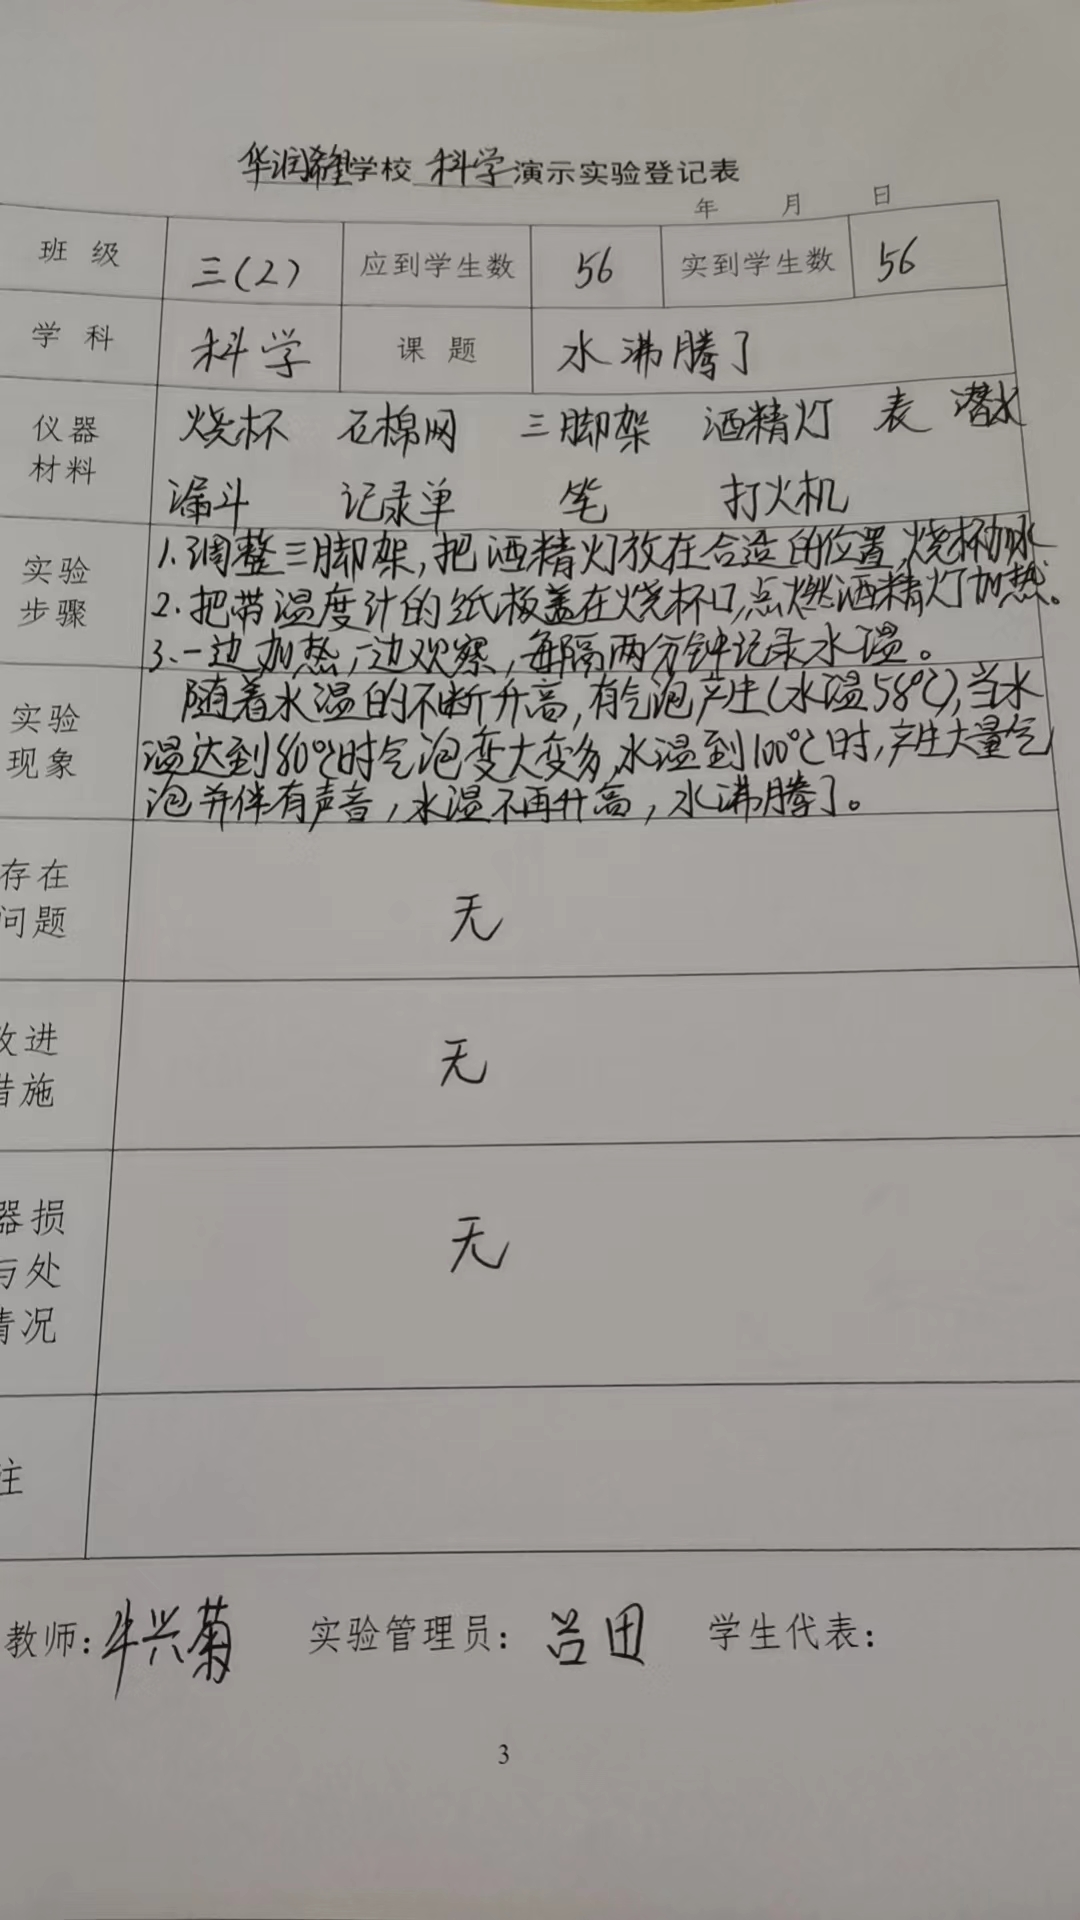 华润希望学校 科学 演示实验登记表
年 月 日
班 级 三（2） 应到学生数 56 实到学生数 56
学 科 科学 课 题 水沸腾了
仪器 烧杯 石棉网 三脚架 酒精灯 表 潜水
材料 漏斗 记录单 笔 打火机
实验 1.调整三脚架，把酒精灯放在合适的位置，烧杯加水
步骤 2.把带温度计的纸板盖在烧杯口，点燃酒精灯加热。
3.一边加热，一边观察，每隔两分钟记录水温。
实验 随着水温的不断升高，有气泡产生（水温58℃），当水
现象 温达到80℃时气泡变大变多，水温到100℃时，产生大量气
泡并伴有声音，水温不再升高，水沸腾了。
存在
问题 无
改进 无
措施
器损 无
与处
情况
注
教师：牛兴菊 实验管理员：吕田 学生代表：
3